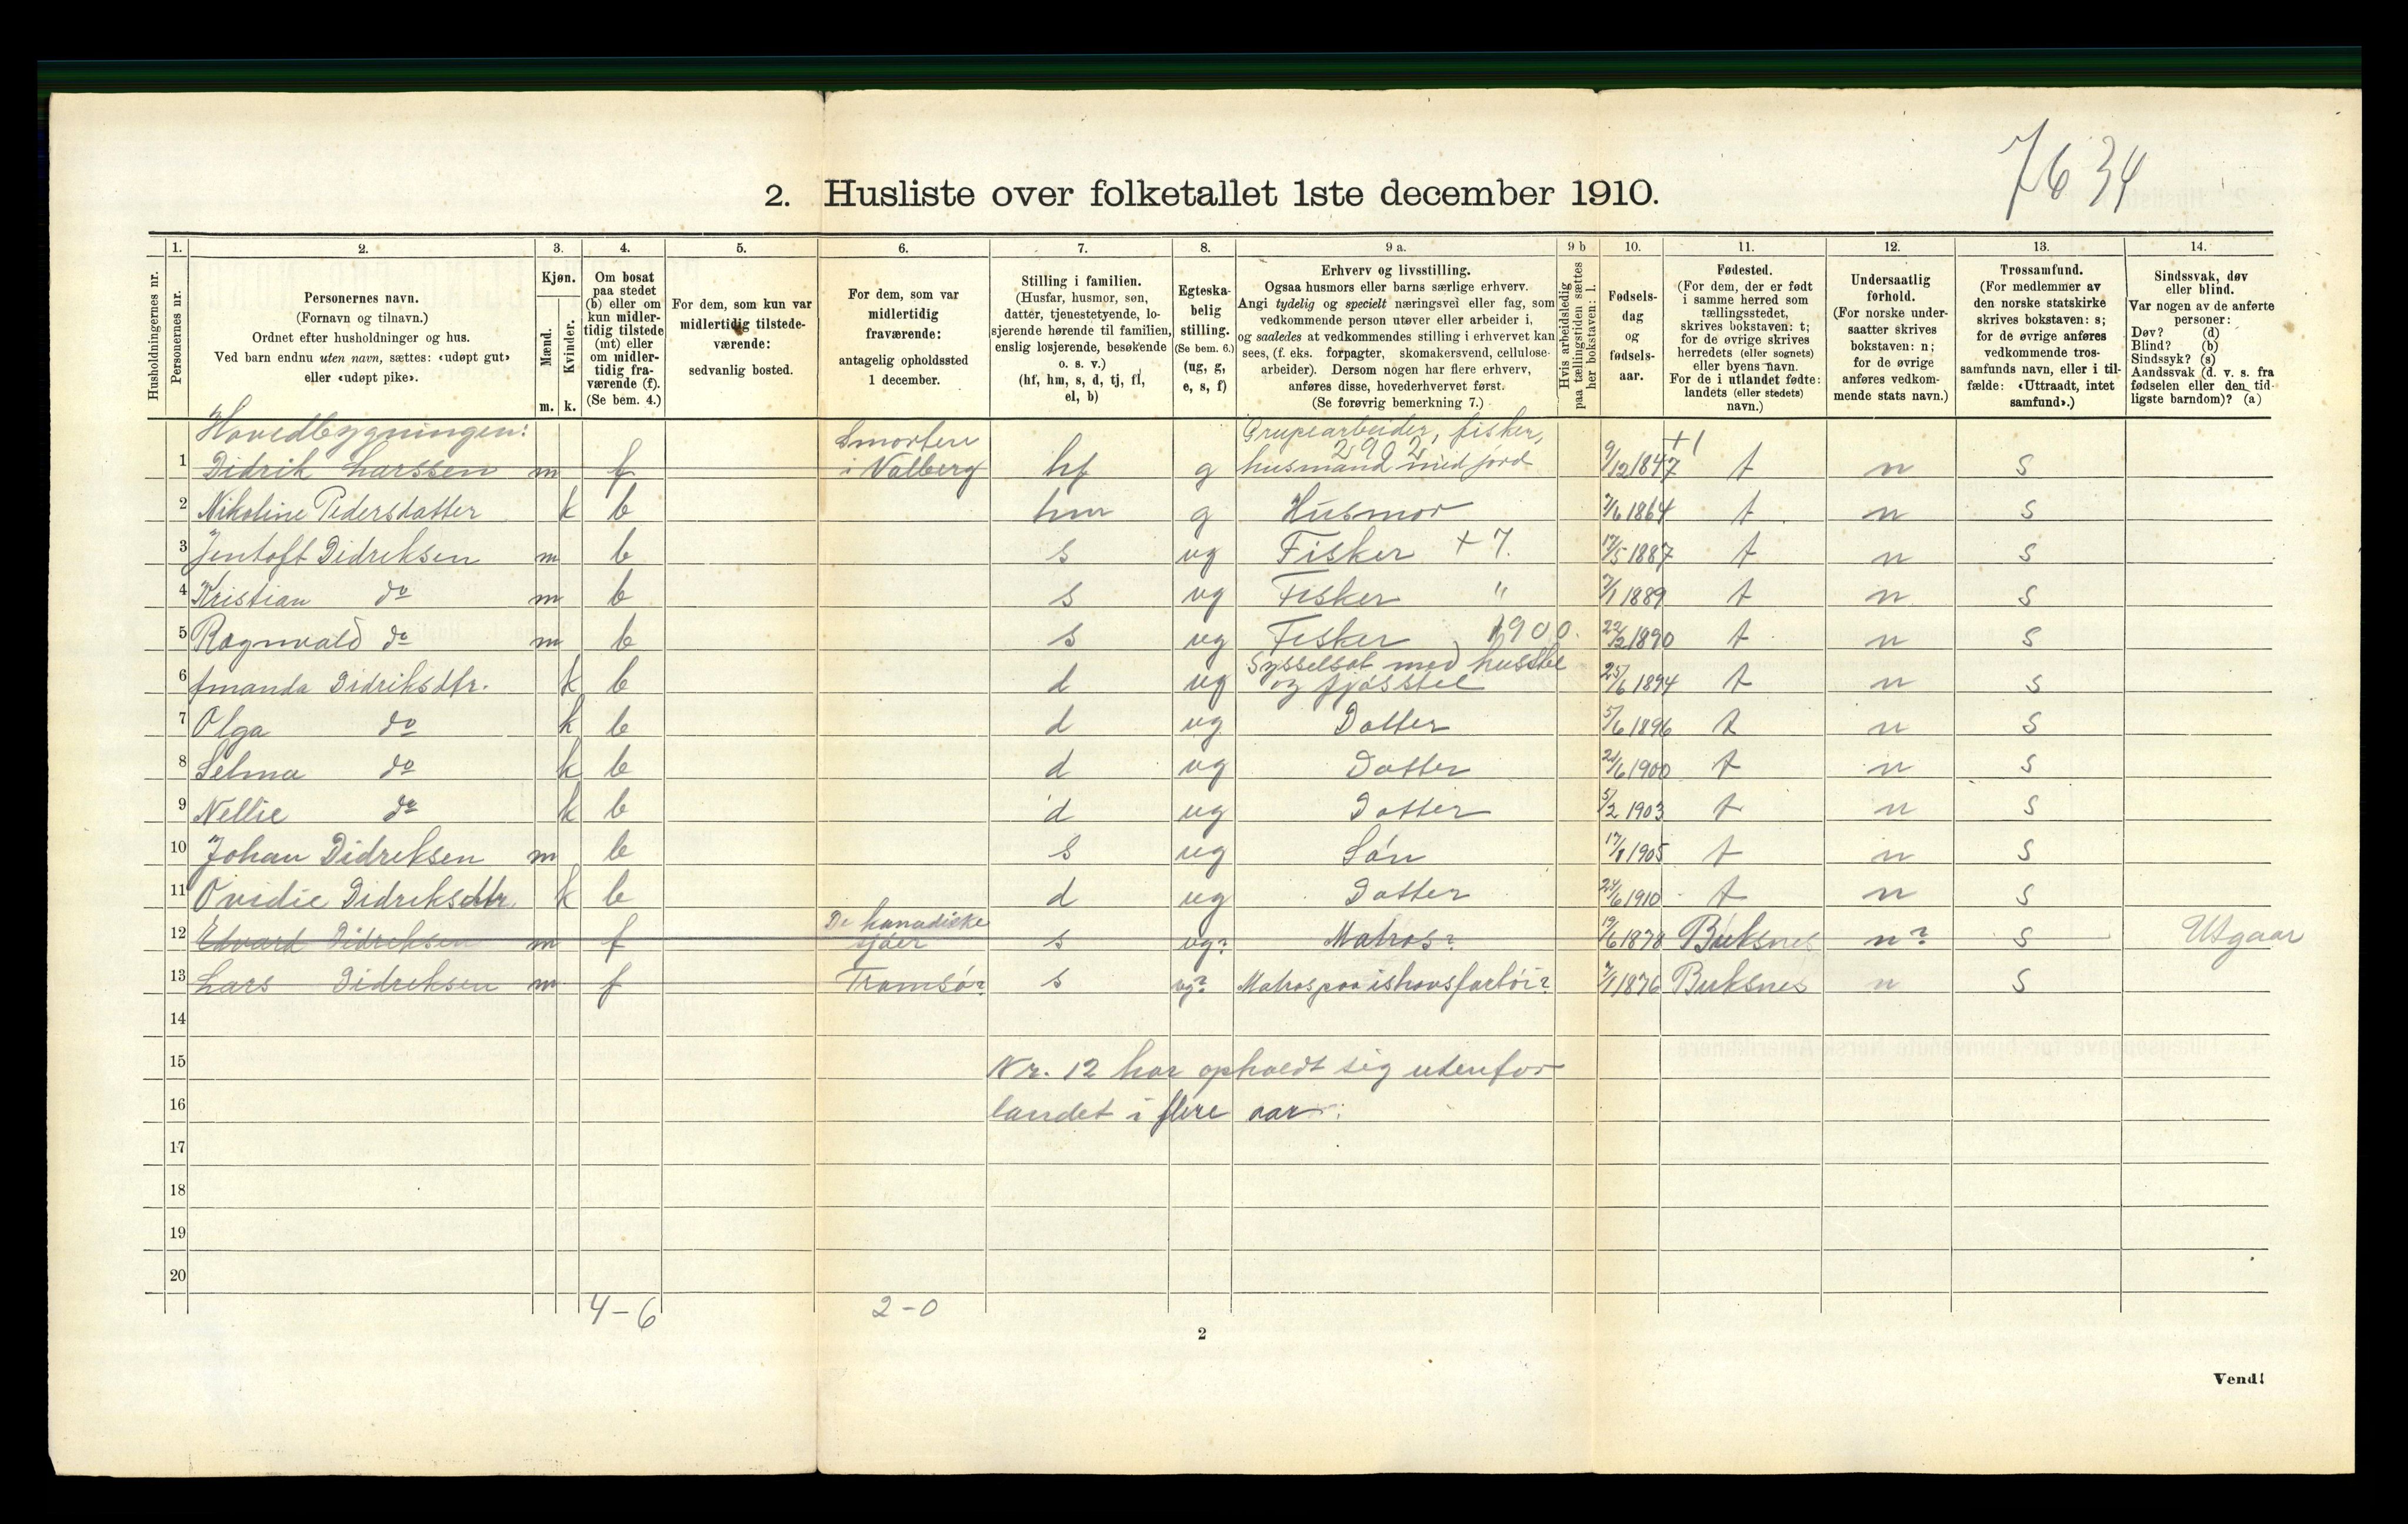 7634
2. Husliste over folketallet 1ste december 1910.
Husholdningernes nr.
1. Personernes nr.
2. Personernes navn.
(Fornavn og tilnavn.)
Ordnet efter husholdninger og hus.
Ved barn endnu uten navn, sættes: «udøpt gut»
eller «udøpt pike».
3. Kjøn.
Mænd. m.
Kvinder. k.
4. Om bosat
paa stedet
(b) eller om
kun midler-
tidig tilstede
(mt) eller
om midler-
tidig fra-
værende (f).
(Se bem. 4.)
5. For dem, som kun var
midlertidig tilstede-
værende:
sedvanlig bosted.
6. For dem, som var
midlertidig
fraværende:
antagelig opholdssted
1 december.
7. Stilling i familien.
(Husfar, husmor, søn,
datter, tjenestetyende, lo-
sjerende hørende til familien,
enslig losjerende, besøkende
o. s. v.)
(hf, hm, s, d, tj, fl,
el, b)
8. Egteska-
belig
stilling.
(Se bem. 6.)
(ug, g,
e, s, f)
9 a. Erhverv og livsstilling.
Ogsaa husmors eller barns særlige erhverv.
Angi tydelig og specielt næringsvei eller fag, som
vedkommende person utøver eller arbeider i,
og saaledes at vedkommendes stilling i erhvervet kan
sees, (f. eks. forpagter, skomakersvend, cellulose-
arbeider). Dersom nogen har flere erhverv,
anføres disse, hovederhvervet først.
(Se forøvrig bemerkning 7.)
9 b Hvis arbeidsledig
paa tællingstiden sættes
her bokstaven: l.
10. Fødsels-
dag
og
fødsels-
aar.
11. Fødested.
(For dem, der er født
i samme herred som
tællingsstedet,
skrives bokstaven: t;
for de øvrige skrives
herredets (eller sognets)
eller byens navn.
For de i utlandet fødte:
landets (eller stedets)
navn.)
12. Undersaatlig
forhold.
(For norske under-
saatter skrives
bokstaven: n;
for de øvrige
anføres vedkom-
mende stats navn.)
13. Trossamfund.
(For medlemmer av
den norske statskirke
skrives bokstaven: s;
for de øvrige anføres
vedkommende tros-
samfunds navn, eller i til-
fælde: «Uttraadt, intet
samfund».)
14. Sindssvak, døv
eller blind.
Var nogen av de anførte
personer:
Døv? (d)
Blind? (b)
Sindssyk? (s)
Aandssvak (d. v. s. fra
fødselen eller den tid-
ligste barndom)? (a)
Hovedbygningen: Smorten Grupearbeider, fisker,
2902 +1
1 Didrik Larssen m f i Valberg hf g husmand med jord 9/12 1847 t n s
2 Nikoline Pedersdatter k b hm g Husmor 7/6 1864 t n s
3 Jentoft Didreksen m b s ug Fisker +7. 17/5 1887 t n s
4 Kristian do m b s ug Fisker " 7/1 1889 t n s
5 Ragnvald do m b s ug Fisker 1900. 22/2 1890 t n s
sysselsat med husstel
6 Amanda Didriksdtr. k b d ug og fjøsstel 25/6 1894 t n s
7 Olga do k b d ug Datter 5/6 1896 t n s
8 Selma do k b d ug Datter 21/6 1900 t n s
9 Nellie do k b d ug Datter 5/2 1903 t n s
10 Johan Didreksen m b s ug Søn 17/8 1905 t n s
11 Ovidie Didreksdtr. k b d ug Datter 24/6 1910 t n s
De kanadiske
12 Edvard Didreksen m f sjøer s ug? Matros? 19/6 1878 Buksnes n? s Utgaar
13 Lars Didreksen m f Tromsø? s ug? Matros paa ishavsfartøi? 7/1 1876 Buksnes n s
14
15 Nr. 12 har opholdt sig utenfor
16 landet i flere aar.
17
18
19
20
4-6 2-0
2
Vend!